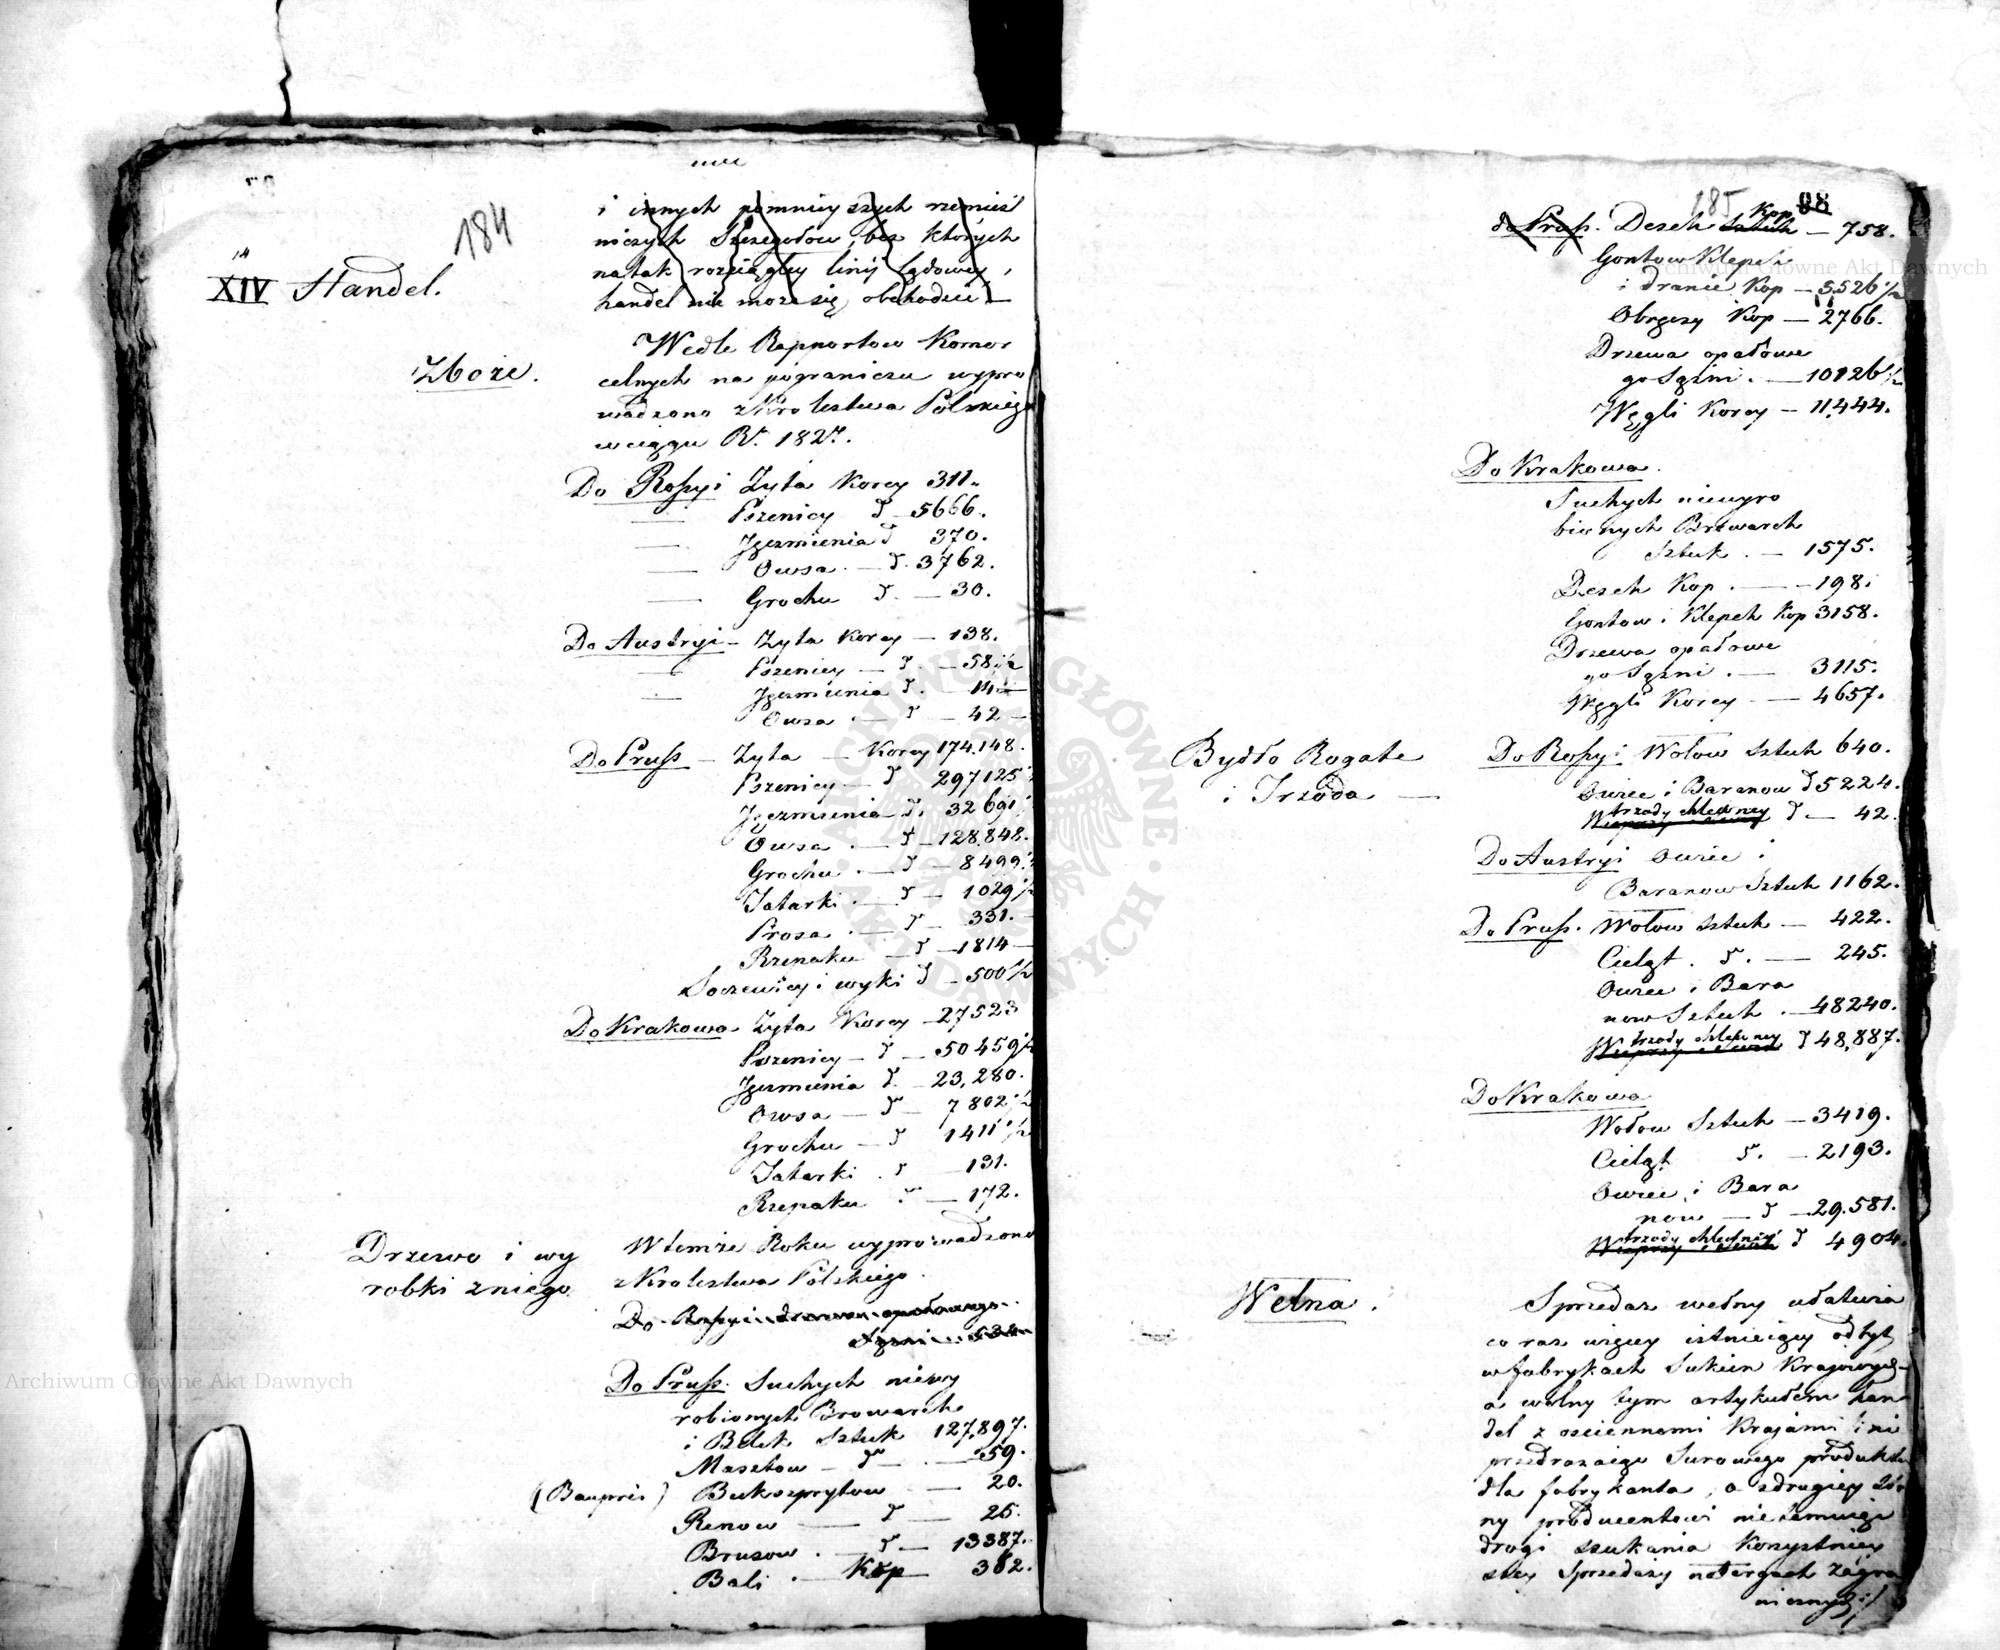 184
i innych pomnieyszych rzemieśl
niczych Szczegołow, bez których
na tak rozciągłey linij Lądowey,
handel nie może się obchodzić
14
XIV Handel.
Zboże.
Wedle Rapportow Komor
celnych na pograniczu wypro
wadzono z Krolestwa Polskiego
w ciągu R. 1827.
Do Rossyi Zyta Korcy 311.
Pszenicy d 5666.
Jęczmienia d 370.
Owsa d. 3762.
Grochu d. 30.
Do Austryi Zyta Korcy 138.
Pszenicy d. 58 1/2
Jęczmienia d. 14
Owsa d 42
Do Pruss Zyta Korcy 174.148.
Pszenicy d 297125
Jęczmienia d. 32691
Owsa d 128.848.
Grochu d 8499.
Tatarki d 1029 1/2
Prosa d 331.
Rzepaku d 1814
Soczewicy i wyki d 500 1/2
Do Krakowa Zyta Korcy 27523
Pszenicy d 50459 1/2
Jęczmienia d. 23,280.
Owsa d 7802 1/2
Grochu d 1411 1/2
Tatarki d 131.
Rzepaku 172.
Drzewo i wy
robki z niego
W temże Roku wyprowadzono
z Krolestwa Polskiego.
Do Rossyi drzewa opałowego
Sążni 534
Do Pruss. Suchych niewy
robionych Browarch
i Belek Sztuk 127,897.
Masztow d 59.
(Baupres) Bukszprytow 20.
Renow d 25.
Brusow d 13387.
Bali Kop 382.
185 98
do Pruss. Desek Sztuk Kop 758.
Gontow Klepek
i dranic Kop 5,526 1/2
Obręczy Kop 2766.
Drzewa opałowe
go Sążni. 10126 1/2
Węgli Korcy 11,444.
Do Krakowa.
Suchych niewyro
bionych Brzwarch
Sztuk 1575.
Desek Kop. 198.
Gontow i Klepek Kop 3158.
Drzewa opałowe
go Sążni. 3115.
Węgli Korcy 4657.
Bydło Rogate
i Trzoda
Do Rossyi Wołow Sztuk 640.
Owiec i Baranow d 5224.
trzody chlewney d 42.
Do Austryi Owiec i
Baranow Sztuk 1162.
Do Pruss. Wołow Sztuk 422.
Cieląt d. 245.
Owiec i Bara
now Sztuk 48240.
trzody chlewney d 48,887.
Do Krakowa
Wołow Sztuk 3419.
Cieląt d. 2193.
Owiec i Bara
now d 29.581.
trzody chlewney d 4904.
Wełna.
Sprzedaz wełny ułatwia
co raz więcey istnieiący odbyt
w fabrykach Sukien Krajowych
a wolny tym artykułem han
del z osciennemi Krajami i nie
przedrażaiąc Surowego produktu
dla fabrykanta, a z drugiey stro
ny producentowi nie tamuiąc
drogi szukania Korzystniey
szey Sprzedaży na targach zagra
nicznych